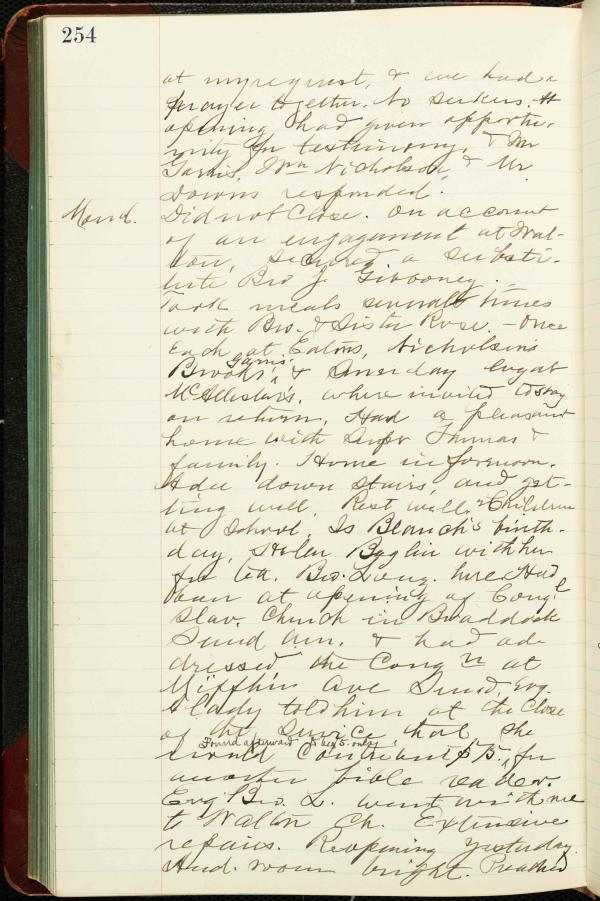 254
at my request, & we had a
prayer together. No seekers. At
opening had given opportu-
nity for testimony, & Mr
Wm Nicholson, & Mr.
Downs responded.
Mond. Did not Close. On account
of an engagement at Wal-
ton, secured a substi-
tute Bro J. Gibboney.
Took meals several times
with Bro. & Sister Rose. - Once
each at Eatons, Nicholson's
Brooks', & Sunday
McAllister's, where invited to stay
on return. Had a pleasant
home with Supr Thomas &
family. Home in forenoon.
Ada down stairs, and get-
ting well. Rest well. Children
at School. Is Blanch's birth-
day, Helen with her
for tea. Bro. Long. here. Had
been at opening of Congl
Slav. Church in Braddock
Sund A.M. & had ad-
dressed the Congn at
Mifflin Ave Sund. Evg.
A lady told him at the close
of the Service that she
Found afterward to be $5. only
would Contribute $ for
another bible reader.
Evg. Bro. L. went with me
to Walton Ch. Extensive
repairs. Reopening yesterday.
Aud. room bright. Preached